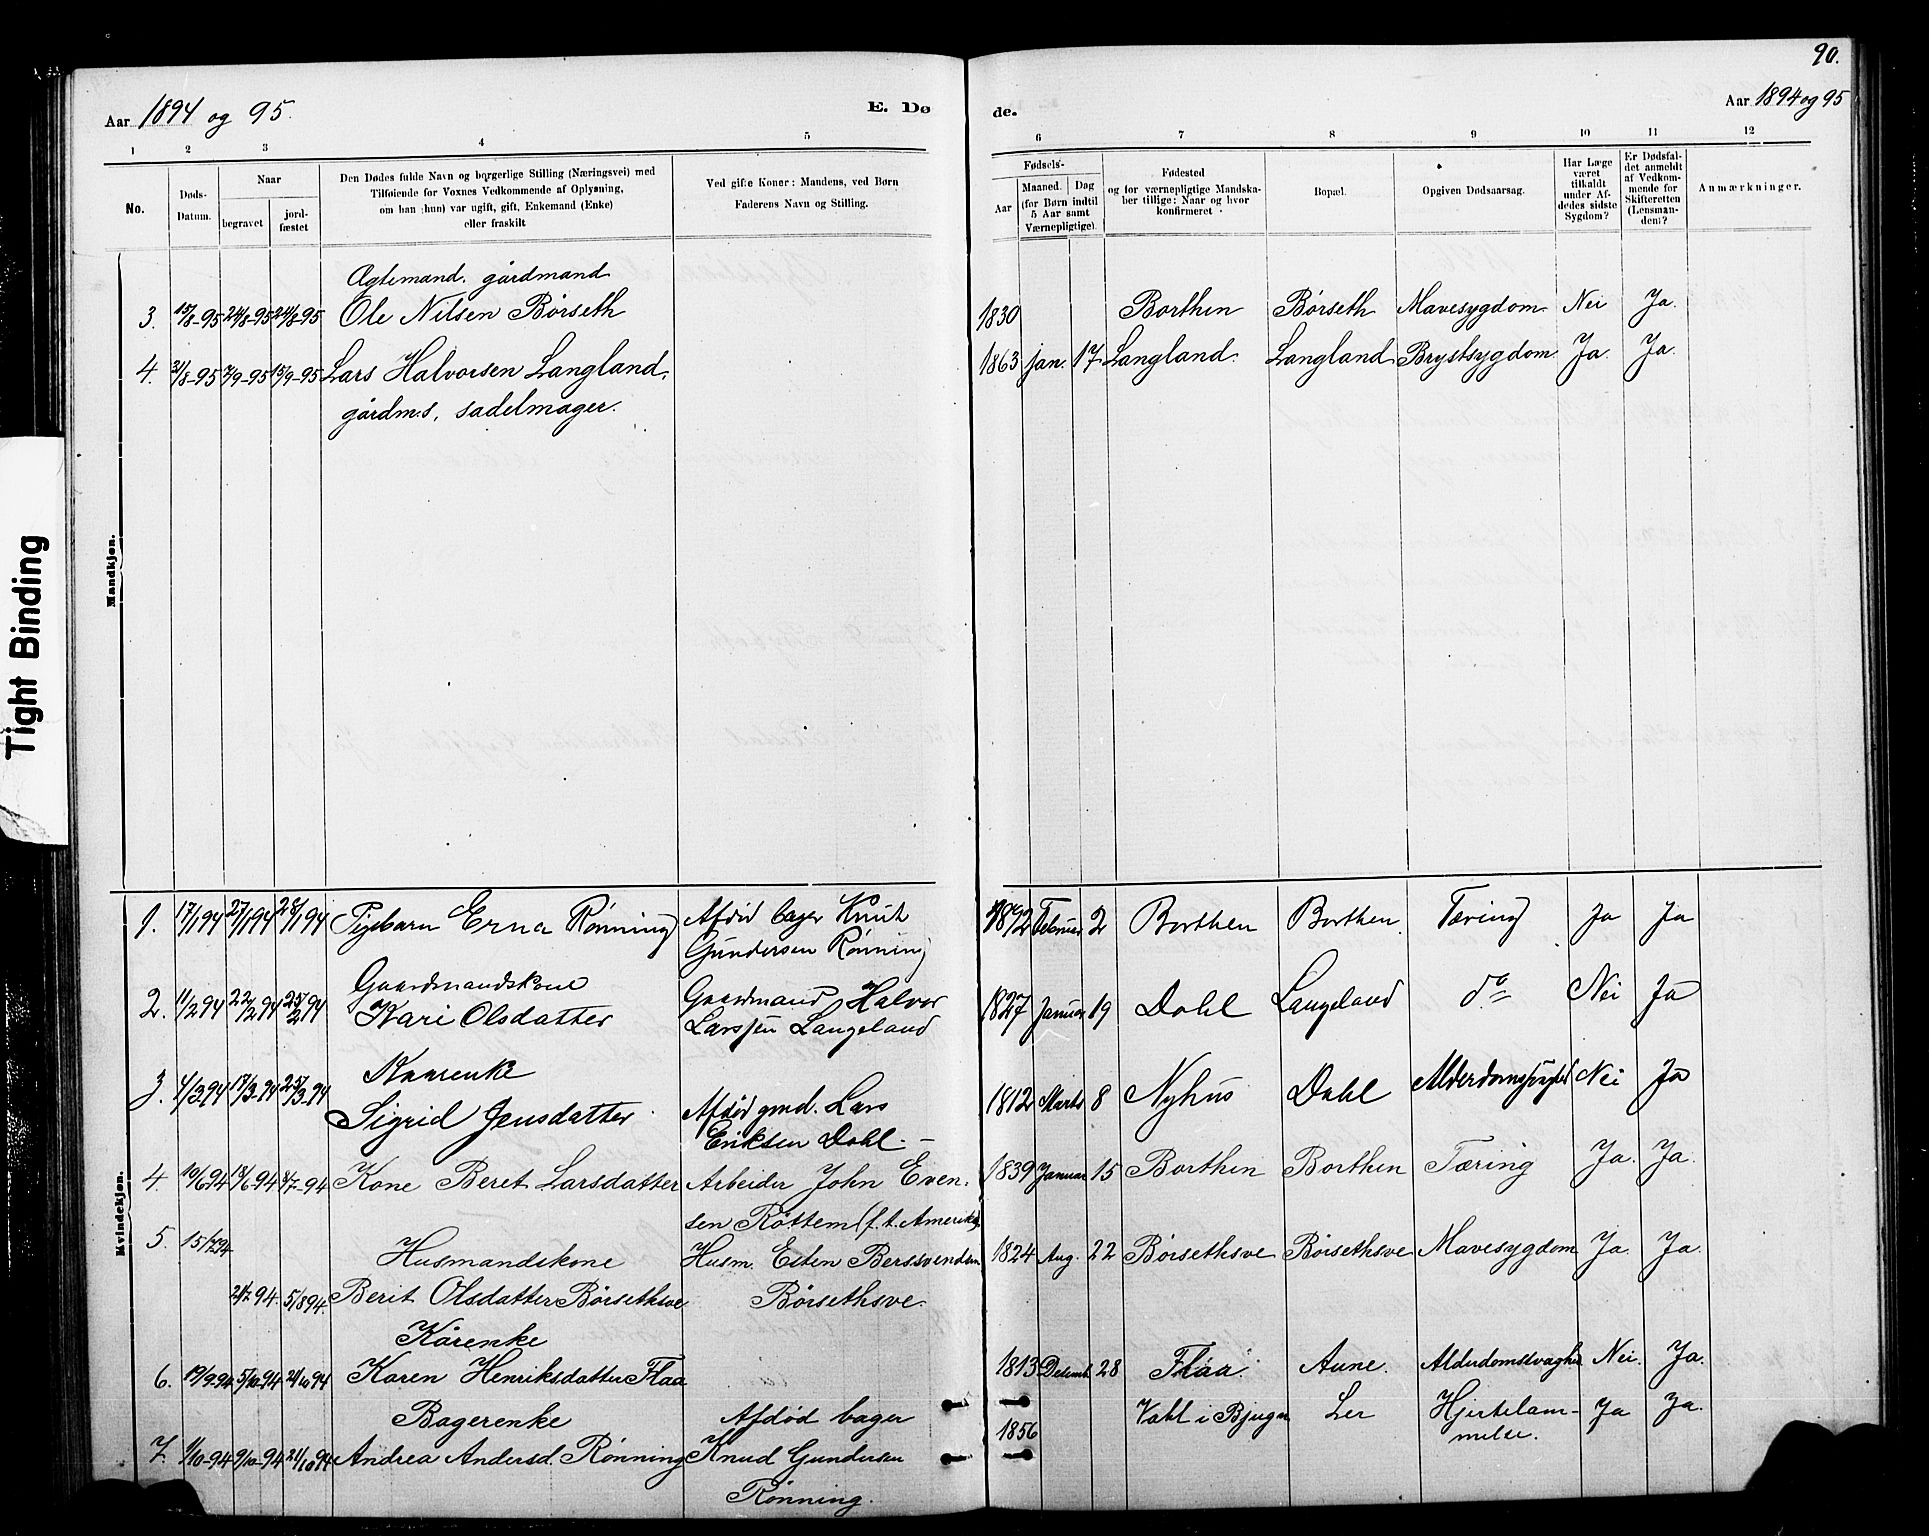 90.
Aar 1894 og 95.
E. Dø
de.
Aar 1894 og 95
1 2 3 4 5
6 7 8 9 10 11 12
No.
Døds-
Datum.
Naar
begravet
jord-
fæstet
Den Dødes fulde Navn og borgerlige Stilling (Næringsvei) med
Tilføiende for Voxnes Vedkommende af Oplysning,
om han (hun) var ugift, gift, Enkemand (Enke)
eller fraskilt
Ved gifte Koner: Mandens, ved Børn
Faderens Navn og Stilling.
Fødsels-
Aar
Maaned.
Dag
(for Børn indtil
5 Aar samt
Værnepligtige)
Fødested
og for værnepligtige Mandska-
ber tillige: Naar og hvor
konfirmeret
Bopæl.
Opgiven Dødsaarsag.
Har Læge
været
tilkaldt
under Af-
dødes sidste
Sygdom?
Er Dødsfal-
det anmeldt
af Vedkom-
mende for
Skifteretten
(Lensman-
den)?
Anmærkninger.
Mandkjøn.
Ægtemand. gårdmand
3. 24/8-95 24/8-95 Ole Nilsen Børseth 1830 Borthen Børseth Mavesygdom Nei Ja.
4. 31/8-95 7/9-95 15/9-95 Lars Halvorsen Langland, 1863 jan. 17 Langland. Langland Brystsygdom Ja. Ja.
gårdm.s, sadelmager.
Tight Binding
Kvindekjøn.
1. 17/1 94 27/1 94 28/1 94 Pigebarn Erna Rønning Afdød bager Knut 1892 Februar 2 Borthen Borthen. Tæring Ja Ja
Gundersen Rønning
Gaardmandskone
2. 11/2 94 22/2 94 25/2 94 Kari Olsdatter Gaardmand Halvor 1827 Januar 19 Dahl Langeland do Nei Ja
Larssen Langeland
Kaarenke
3. 4/3 94 17/3 94 25/3 94 Sigrid Jensdatter Afdød gmd. Lars 1812 Marts 8 Nyhus Dahl Nei Ja
Eriksen Dahl.
4. 10/6 94 18/6 94 94 Kone Beret Larsdatter Arbeider John Even- 1839 Januar 15 Borthen Borthen Tæring Ja. Ja.
sen Røttem (f. t. Amerika)
5. 15/7 94 Husmandskone Husm. Esten Berssvendsen 1824 Aug. 22 Børsethsve Børsethsve Mavesygdom Ja. Ja.
21/7 94. 5/8 94. Berit Olsdatter Børsethsve Børsethsve.
Kårenke
6. 19/9-94 5/10-94 21/10 94 Karen Henriksdatter Flaa 1813 Desemb. 28 Flaa. Aune. Alderdomssvaghed Nei. Ja.
Bagerenke Afdød bager
7. 1/10-94 9/10-94 21/10 94 Andrea Andersd. Rønning Knud Gundersen 1856 i Bjugn Ler Hjertelam- Ja Ja.
melse.
Rønning.